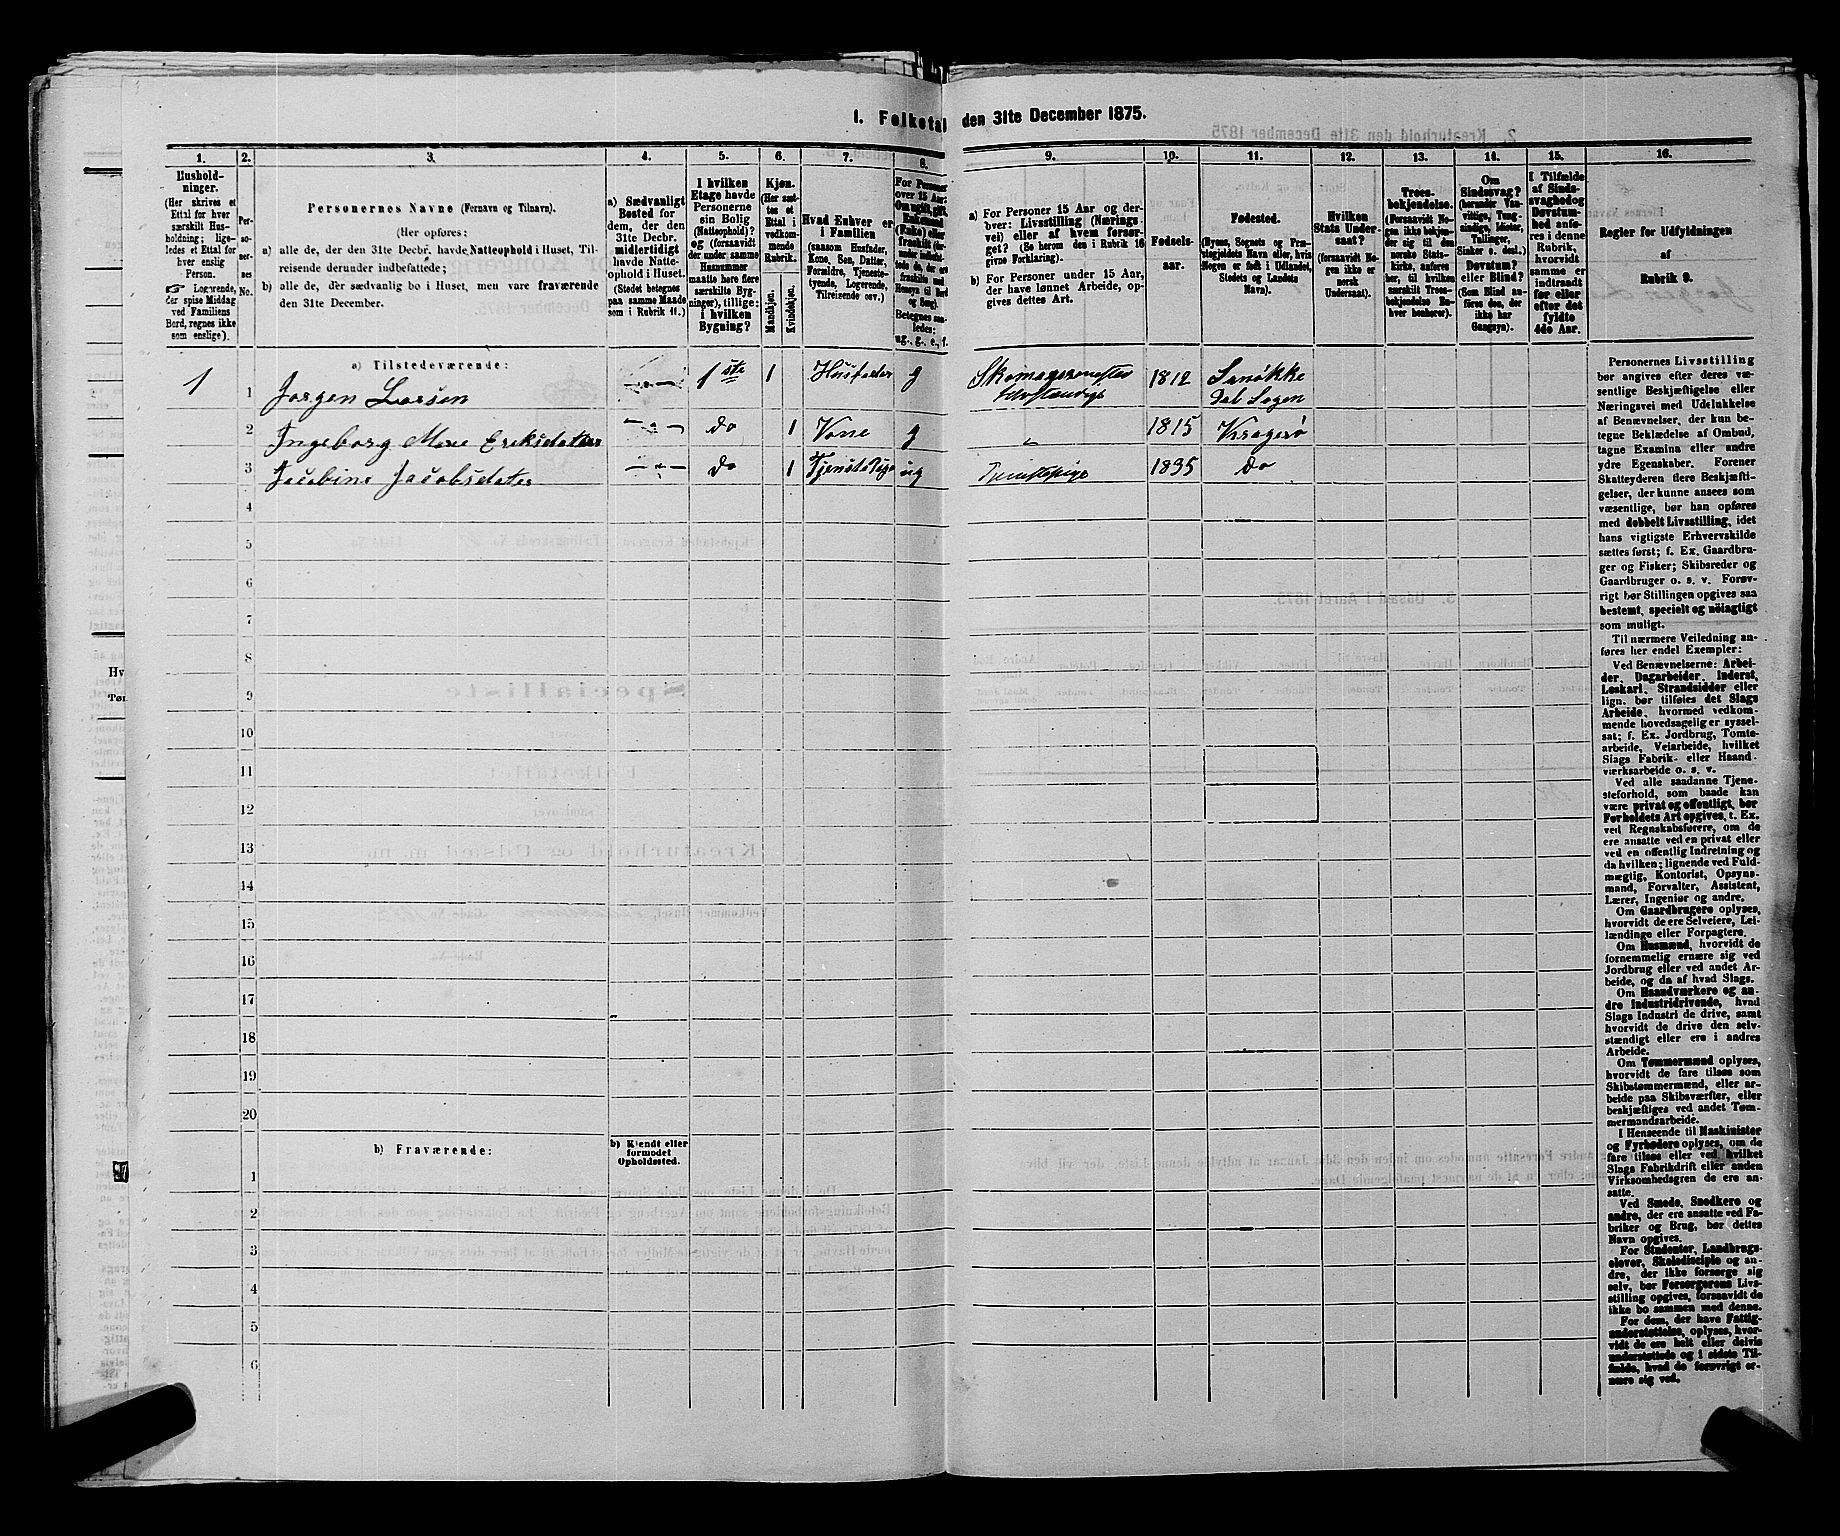 1. Folketal den 31te December 1875.
1.
2.
3.
4.
5.
6.
7.
8.
9.
10.
11.
12.
13.
14.
15.
16.
Hushold-
ninger.
(Her skrives et
Ettal for hver
særskilt Hus-
holdning; lige-
ledes et Ettal for
hver enslig
Person.
☞ Logerende,
der spise Middag
ved Familiens
Bord, regnes ikke
som enslige).
Per-
so-
ner-
nes
No.
Personernes Navne (Fornavn og Tilnavn).
(Her opføres:
a) alle de, der den 31te Decbr. havde Natteophold i Huset, Til-
reisende derunder indbefattede;
b) alle de, der sædvanlig bo i Huset, men vare fraværende
den 31te December.
a) Sædvanligt
Bosted for
dem, der den
31te Decbr.
midlertidigt
havde Natte-
ophold i Huset.
(Stedet betegnes
paa samme Maade
som i Rubrik 11.)
I hvilken
Etage havde
Personerne
sin Bolig
(Natteophold)?
og (forsaavidt
der under samme
Husnummer
maatte høre flere
særskilte Byg-
ninger), tillige:
i hvilken
Bygning?
Kjøn.
(Her sæt-
tes et
Ettal i
vedkom-
mende
Rubrik.
Mandkjøn.
Kvindekjøn.
Hvad Enhver er
i Familien
(saasom Husfader,
Kone, Søn, Datter,
Forældre, Tjeneste-
tyende, Logerende,
Tilreisende osv.)
For Personer
over 15 Aar:
Om ugift, gift,
Enkemand
(Enke) eller
fraskilt
Betegnes saa-
ledes:
ug., g., e., f.
a) For Personer 15 Aar og der-
over: Livsstilling (Nærings-
vei) eller af hvem forsør-
get? (Se herom den i Rubrik 16
givne Forklaring).
b) For Personer under 15 Aar,
der have lønnet Arbeide, op-
gives dettes Art.
Fødsels-
aar.
Fødested.
(Byens, Sognets og Præ-
stegjeldets Navn eller, hvis
Nogen er født i Udlandet,
Stedets og Landets
Navn).
Hvilken
Stats Under-
saat?
(forsaavidt No-
gen ikke er
norsk
Undersaat).
Troes-
bekjendelse.
(Forsaavidt No-
gen ikke bekjen-
der sig til den
norske Stats-
kirke, anføres
her, til hvilken
særskilt Troes-
bekjendelse En-
hver henhører).
Om
Sindssvag?
(herunder Van-
vittige, Tung-
sindige, Idioter,
Tullinger,
Sinker o. desl.)
Døvstum?
eller Blind?
(Som Blind an-
føres den, der
ikke har
Gangsyn).
I Tilfælde
af Sinds-
svaghed og
Døvstum-
hed anfø-
res i denne
Rubrik,
hvorvidt
samme er
indtraadt
før eller
efter det
fyldte
4de Aar.
Regler for Udfyldningen
af
Rubrik 9.
a) Tilstedeværende:
1 1 Jørgen Larsen 1ste 1 Husfader g Skomagermester 1812 Sanøkke
Selvstændigt dal Sogen
2 Ingeborg Marie Eriksdatter do 1 Kone g 1815 Kragerø
3 Jacobine Jacobsdatter do 1 Tjenstepige ug Tjenistepige 1835 do
4
5
6
7
8
9
10
11
12
13
14
15
16
17
18
19
20
b) Fraværende:
b) Kjendt eller
formodet
Opholdssted.
1
2
3
4
5
6
Personernes Livsstilling
bør angives efter deres væ-
sentlige Beskjæftigelse eller
Næringsvei med Udelukkelse
af Benævnelser, der kun be-
tegne Beklædelse af Ombud,
tagne Examina eller andre
ydre Egenskaber. Forener
Skatteyderen flere Beskjæfti-
gelser, der kunne ansees som
væsentlige, bør han opføres
med dobbelt Livsstilling, idet
hans vigtigste Erhvervskilde
sættes først; f. Ex. Gaardbru-
ger og Fisker; Skibsreder og
Gaardbruger o. s. v. Forøv-
rigt bør Stillingen opgives saa
bestemt, specielt og nöiagtigt
som muligt.
Til nærmere Veiledning an-
føres her endel Exempler:
Ved Benævnelserne: Arbei-
der, Dagarbeider, Inderst,
Løskarl, Strandsidder eller
lign. bør tilføies det Slags
Arbeide, hvormed vedkom-
mende hovedsagelig er syssel-
sat; f. Ex. Jordbrug, Tomte-
arbeide, Veiarbeide, hvilket
Slags Fabrik- eller Haand-
værksarbeide o. s. v.
Ved alle saadanne Tjene-
steforhold, som baade kan
være privat og offentligt, bør
Forholdets Art opgives, t. Ex.
ved Regnskabsførere, om de
ere ansatte ved en privat eller
ved en offentlig Indretning og
da hvilken; lignende ved Fuld-
mægtig, Kontorist, Opsyns-
mand, Forvalter, Assistent,
Lærer, Ingeniør og andre.
Om Gaardbrugere oplyses,
hvorvidt de ere Selveiere, Lei-
lændinge eller Forpagtere.
Om Husmænd, hvorvidt de
fornemmelig ernære sig ved
Jordbrug eller ved andet Ar-
beide, og da af hvad Slags.
Om Haandværkere og an-
dre Industridrivende, hvad
Slags Industri de drive, samt
hvorvidt de drive den selv-
stændigt eller ere i andres
Arbeide.
Om Tømmermænd oplyses,
hvorvidt de fare tilsøs som
Skibstømmermænd, eller ar-
beide paa Skibsværfter, eller
beskjæftiges ved andet Tøm-
mermandsarbeide.
I Henseende til Maskinister
og Fyrbødere oplyses, om de
fare tilsøs eller ved hvilket
Slags Fabrikdrift eller anden
Virksomhedsgren de ere an-
satte.
Ved Smede, Snedkere og
andre, der ere ansatte ved Fa-
briker og Brug, bør dettes
Navn opgives.
For Studenter, Landbrugs-
elever, Skoledisciple og an-
dre, der ikke forsørge sig
selv, bør Forsørgerens Livs-
stilling opgives, forsaavidt de
ikke bo sammen med denne.
For dem, der have Fattig-
understøttelse, oplyses, hvor-
vidt de ere helt eller delvis
understøttede og i sidste Til-
fælde, hvad de forøvrigt er-
nære sig ved.